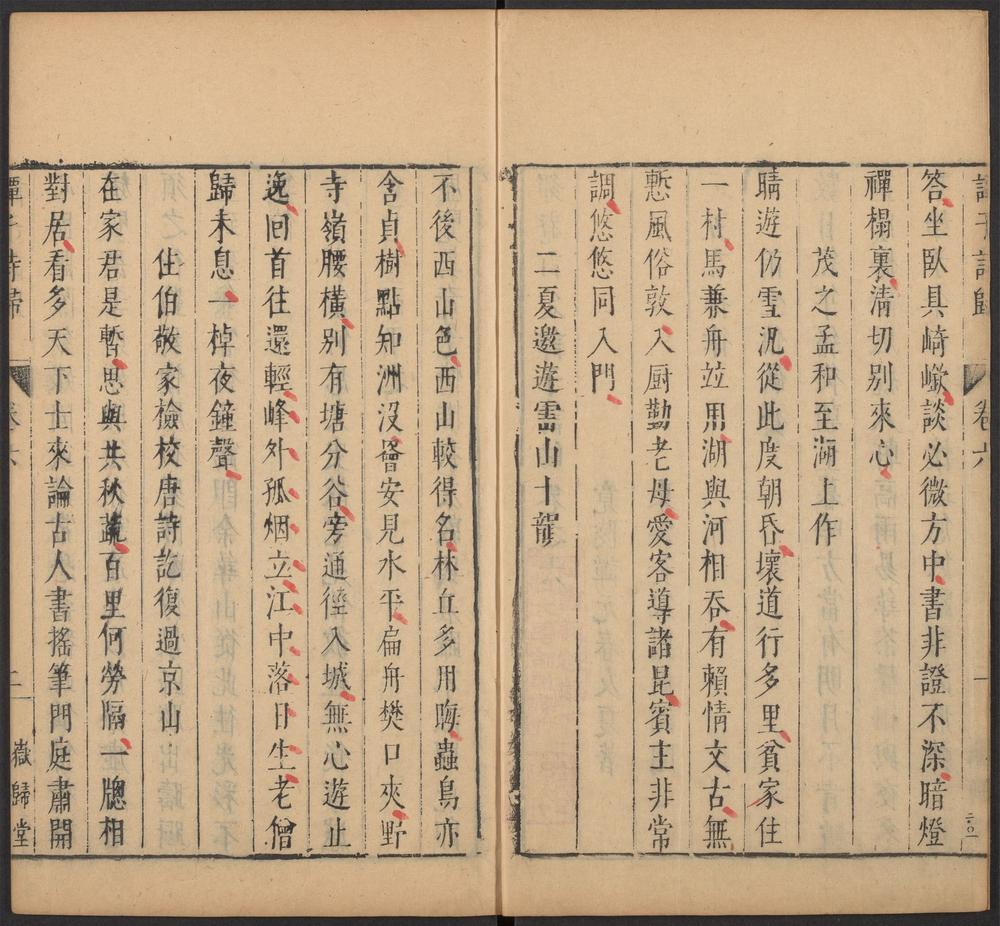 譚子詩歸 卷六 一 二〇一
答坐臥具崎巇談必微方中書非證不深暗燈
禪榻裏清切別來心
茂之孟和至湖上作
晴遊仍雪汎從此度朝昏壞道行多里貧家住
一村馬兼舟竝用湖與河相吞有賴情文古無
慙風俗敦入厨勤老母愛客導諸昆賓主非常
調悠悠同入門
二夏邀遊雷山十韻
不後西山色西山較得名林丘多用晦蟲鳥亦
含貞樹點知洲沒罾安見水平扁舟樊口夾野
寺嶺腰橫別有塘分谷旁通徑入城無心遊止
逸回首往還輕峰外孤烟立江中落日生老僧
歸未息一棹夜鐘聲
住伯敬家檢校唐詩訖復過京山
在家君是暫思與共秋蔬百里何勞隔一牕相
對居看多天下士來論古人書搖筆門庭肅開
譚子詩歸 卷六 二 嶽歸堂